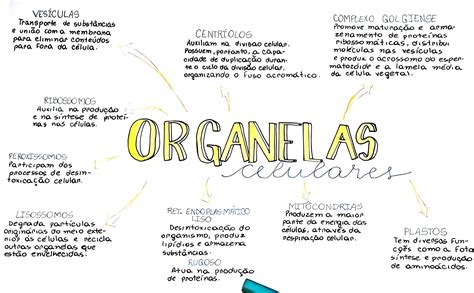 VESÍCULAS
Transporte de substâncias
e união com a membrana
para eliminar conteúdos
para fora da célula.
CENTRÍOLOS
Auxiliam na divisão celular.
Possuem, portanto, a capa-
cidade de duplicação durante
o ciclo da divisão celular,
organizando o fuso acromático.
COMPLEXO GOLGIENSE
Promove maturação e arma-
zenamento de proteínas
ribossomáticas, distribui
moléculas nas vesículas
e produz o acrossomo do esper-
matozóide e a lamela média
da célula vegetal.
RIBOSSOMOS
Auxilia na produção
e na síntese de proteí-
nas nas células.
ORGANELAS
celulares
PEROXISSOMOS
Participam dos
processos de desin-
toxicação celular.
LISOSSOMOS
Degrada partículas
originárias do meio exter-
ior às células e recicla
outras organelas que
estão envelhecidas.
RET. ENDOPLASMÁTICO
LISO
Desintoxicação do
organismo, produz
lipídios e armazena
substâncias.
RUGOSO
Atua na produção
de proteínas.
MITOCÔNDRIAS
Produzem a maior
parte da energia das
células, através da
respiração celular.
PLASTOS
Tem diversas fun-
ções como a fotos
síntese e produção
de aminoácidos.